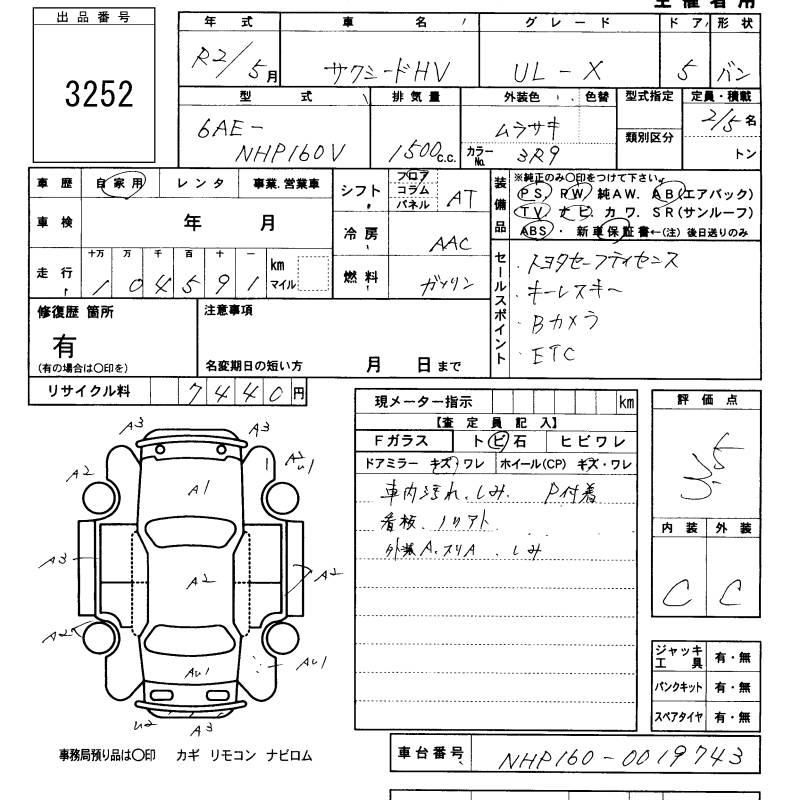 出品番号
3252
年式 車名 グレード ドア 形状
R2/5月 サクシードHV UL-X 5 バン
型式 排気量 外装色 色替 型式指定 定員・積載
6AE-
NHP160V 1500c.c. ムラサキ 2/5名
カラーNo. 3R9 類別区分 トン
車歴 自家用 レンタ 事業.営業車
車検 年 月
走行 十万 万 千 百 十 一
104591 km マイル
シフト フロア コラム パネル AT
冷房 AAC
燃料 ガソリン
装備品
※純正のみ〇印をつけて下さい。
PS. RW. 純AW. AB(エアバック)
TV. ナビ. カワ. SR(サンルーフ)
ABS. 新車保証書←(注)後日送りのみ
セールスポイント
・トヨタセーフティセンス
・キーレスキー
・Bカメラ
・ETC
修復歴 箇所
有
(有の場合は〇印を)
注意事項
名変期日の短い方 月 日まで
リサイクル料 7440円
現メーター指示 km
【査定員記入】
Fガラス トビ石 ヒビワレ
ドアミラー キズ・ワレ ホイール(CP) キズ・ワレ
車内汚れ、しみ. P付着
看板、ノリアト
外装A、スリA、しみ
評価点
3.5
内装 外装
C C
A3 A3
A2 A2 AU1
A1
A3 A2 A2
A2 AU1 AU1
U2 A3
ジャッキ工具 有・無
パンクキット 有・無
スペアタイヤ 有・無
事務局預り品は〇印 カギ リモコン ナビロム
車台番号 NHP160-0019743